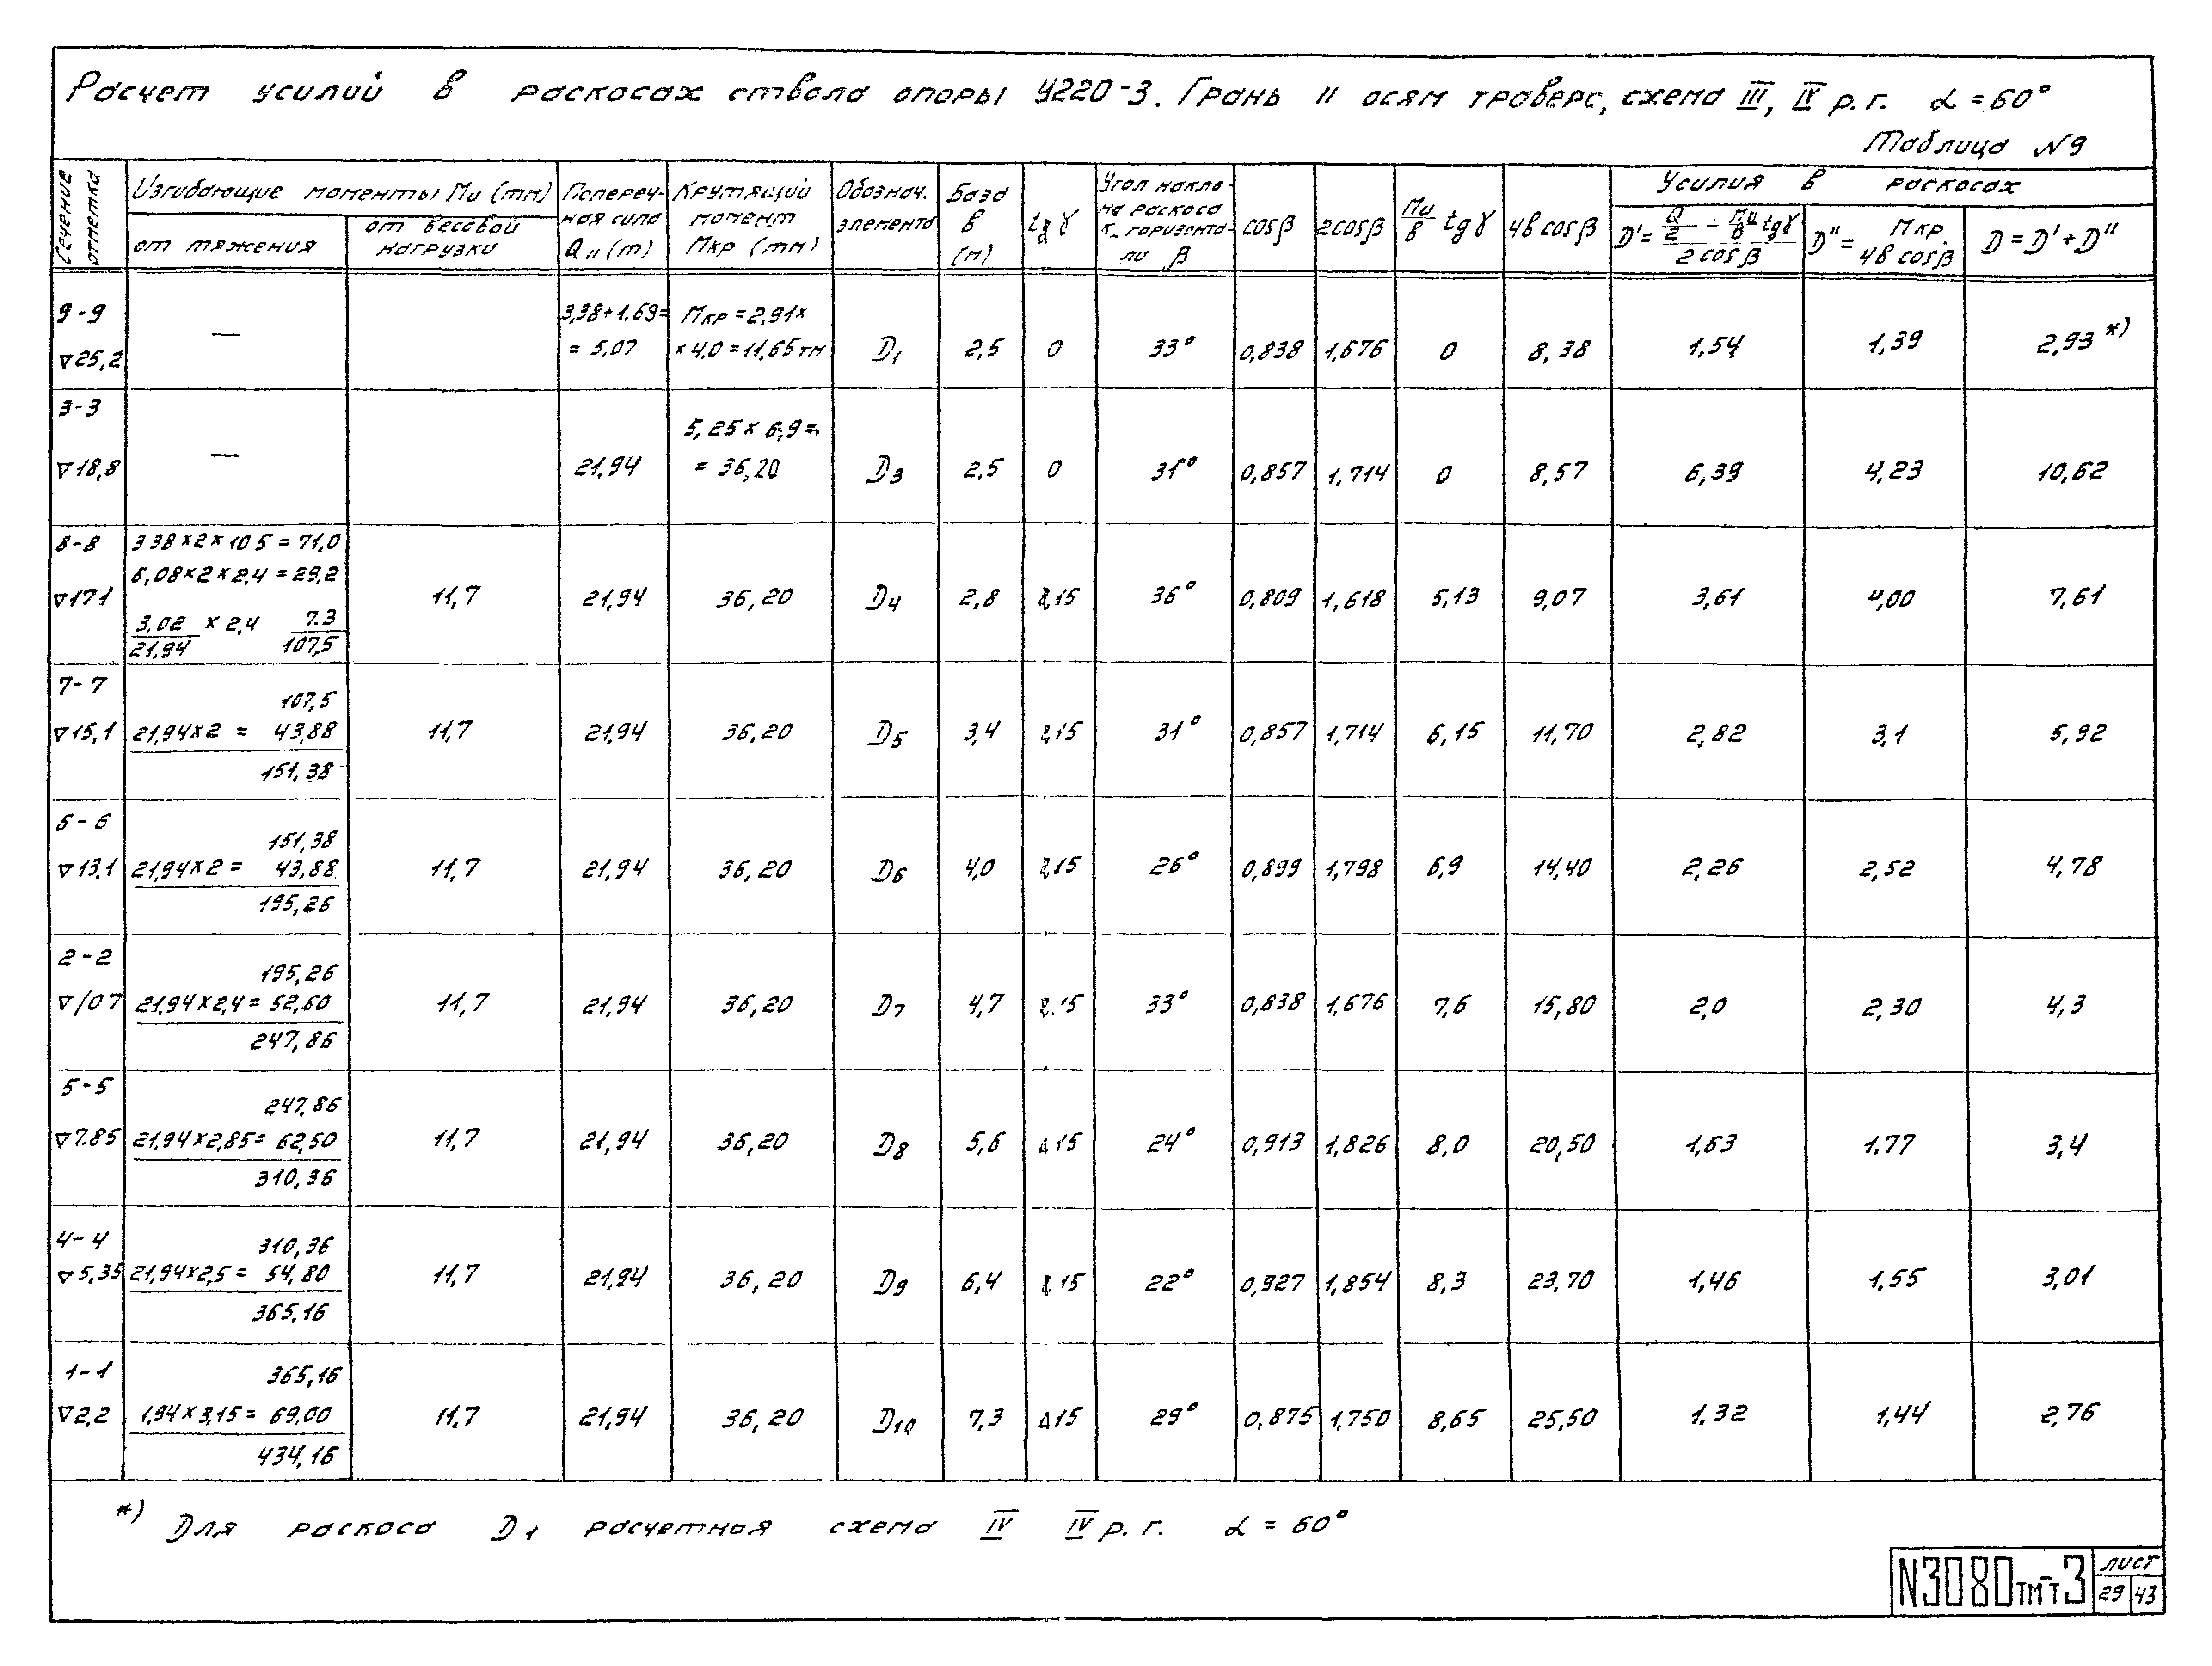 Расчет усилий в раскосах ствола опоры У220-3. Грань II осям траверс, схема III, IV р.г. α = 60°
Таблица N9
Сечение отметка
Изгибающие моменты Mи (тм)
от тяжения
от весовой нагрузки
Попереч-
ная сила
Q II (т)
Крутящий
момент
Mкр (тм)
Обознач.
элемента
База
в
(м)
tg γ
Угол накло-
на раскоса
к горизонта-
ли β
cosβ
2cosβ
Mи/в tg γ
4в cosβ
Усилия в раскосах
D' = (Q/2 - Mи/в tgγ) / 2 cosβ
D" = Mкр. / 4в cosβ
D = D' + D"
9-9
∇25,2
—
3,38+1.69=
= 5,07
Mкр = 2,91×
× 4,0 = 11,65 тм
D1 2,5 0 33° 0,838 1,676 0 8,38 1,54 1,39 2,93 *)
3-3
∇18,8
—
21,94
5,25 × 6,9 =
= 36,20
D3 2,5 0 31° 0,857 1,714 0 8,57 6,39 4,23 10,62
8-8
∇17.1
3 38×2×10 5 = 71,0
6,08×2×2.4 = 29,2
3,02 × 2,4 7.3
21,94 107,5
11,7 21,94 36,20 D4 2,8 0,15 36° 0,809 1,618 5,13 9,07 3,61 4,00 7,61
7-7
∇15,1
107,5
21,94×2 = 43,88
151,38
11,7 21,94 36,20 D5 3,4 0,15 31° 0,857 1,714 6,15 11,70 2,82 3,1 5,92
6-6
∇13.1
151,38
21,94×2 = 43,88
195,26
11,7 21,94 36,20 D6 4,0 0,15 26° 0,899 1,798 6,9 14,40 2,26 2,52 4,78
2-2
∇107
195,26
21,94×2,4 = 52,60
247,86
11,7 21,94 36,20 D7 4,7 0.15 33° 0,838 1,676 7,6 15,80 2,0 2,30 4,3
5-5
∇7.85
247,86
21,94×2,85 = 62,50
310,36
11,7 21,94 36,20 D8 5,6 0,15 24° 0,913 1,826 8,0 20,50 1,63 1.77 3,4
4-4
∇5,35
310,36
21,94×2,5 = 54,80
365,16
11,7 21,94 36,20 D9 6,4 0,15 22° 0,927 1,854 8,3 23,70 1,46 1,55 3,01
1-1
∇2,2
365,16
1,94×3,15 = 69,00
434,16
11,7 21,94 36,20 D10 7,3 0,15 29° 0,875 1,750 8,65 25,50 1.32 1,44 2,76
*) Для раскоса D1 расчетная схема IV IV р. г. α = 60°
N3080тм-т3
лист
29 43